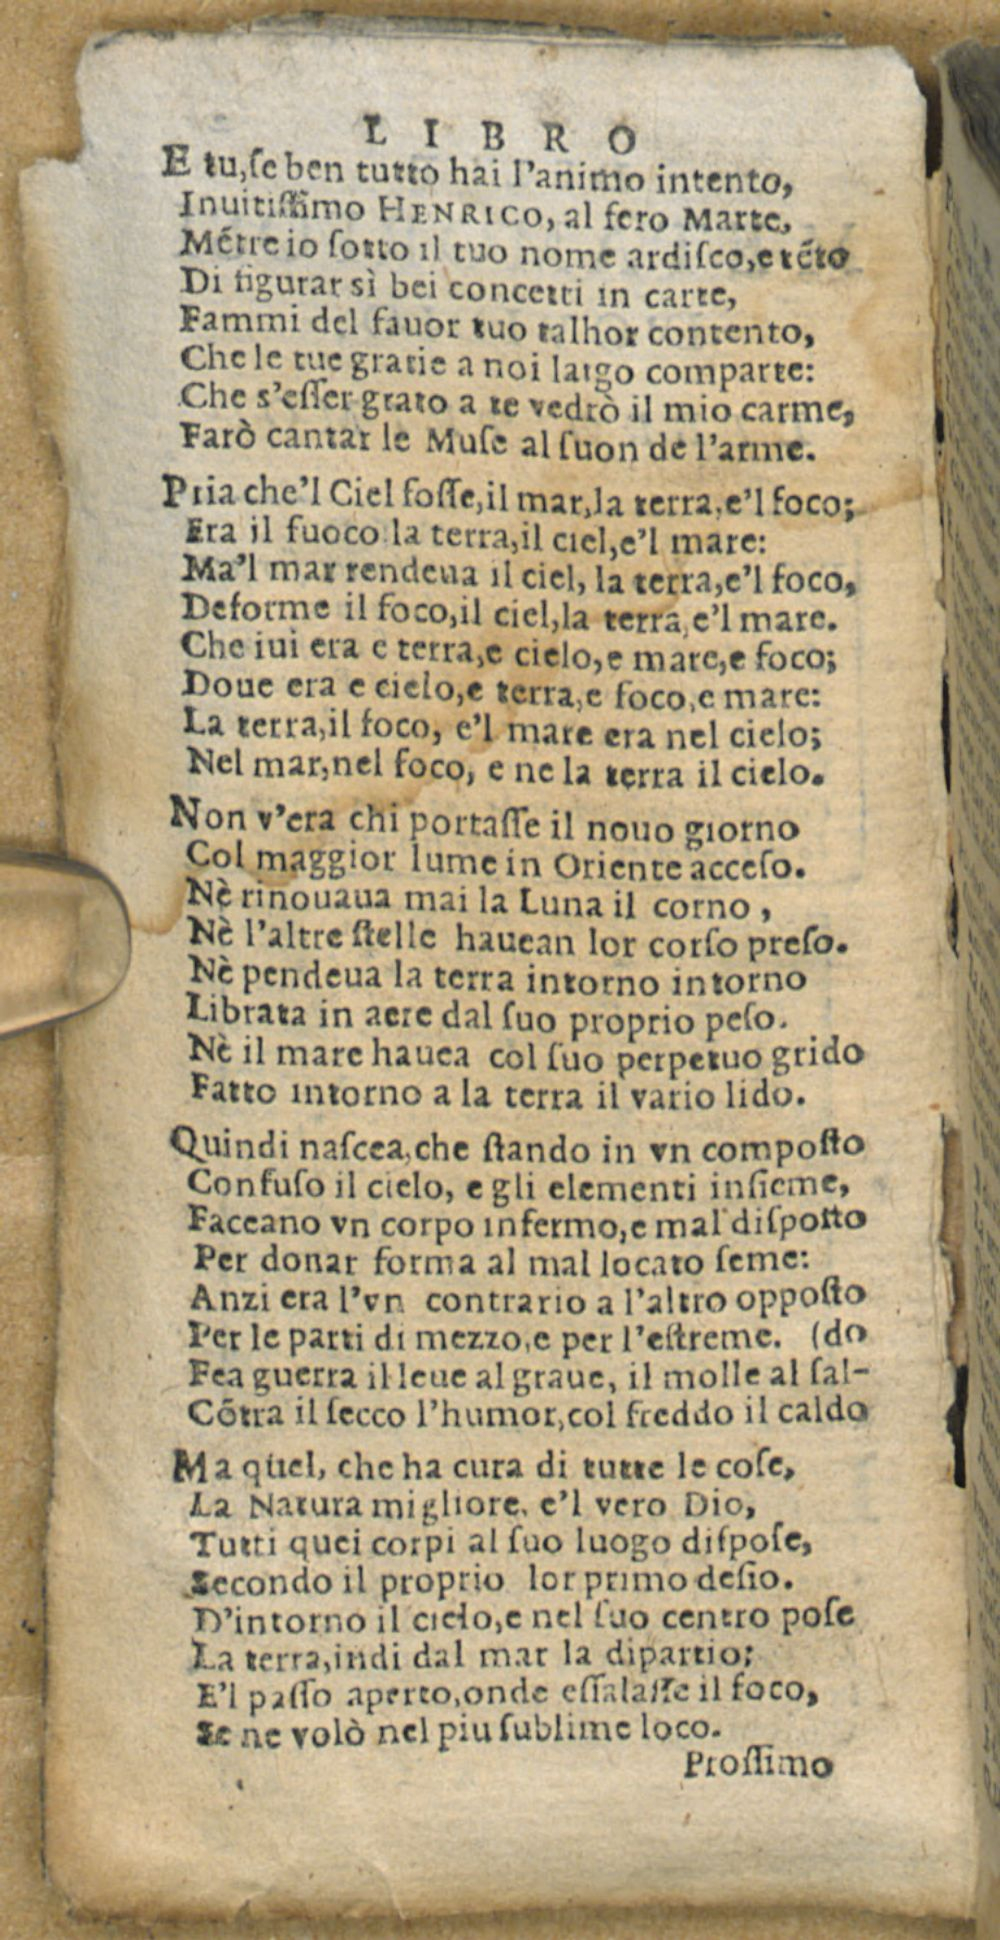 LIBRO
E tu,ſe ben tutto hai l'animo intento,
Inuitiſſimo HENRICO, al fero Marte,
Mẽtre io ſotto il tuo nome ardiſco,e tẽto
Di figurar sì bei concetti in carte,
Fammi del fauor tuo talhor contento,
Che le tue gratie a noi largo comparte:
Che s'eſſer grato a te vedrò il mio carme,
Farò cantar le Muſe al ſuon de l'arme.
Pria che'l Ciel foſſe,il mar,la terra,e'l foco;
Era il fuoco la terra,il ciel,e'l mare:
Ma'l mar rendeua il ciel, la terra,e'l foco,
Deforme il foco,il ciel,la terra,e'l mare.
Che iui era e terra,e cielo,e mare,e foco;
Doue era e cielo,e terra,e foco,e mare:
La terra,il foco, e'l mare era nel cielo;
Nel mar,nel foco, e ne la terra il cielo.
Non v'era chi portaſſe il nouo giorno
Col maggior lume in Oriente acceſo.
Nè rinouaua mai la Luna il corno ,
Nè l'altre ſtelle hauean lor corſo preſo.
Nè pendeua la terra intorno intorno
Librata in aere dal ſuo proprio peſo.
Nè il mare hauea col ſuo perpetuo grido
Fatto intorno a la terra il vario lido.
Quindi naſcea,che ſtando in vn compoſto
Confuſo il cielo, e gli elementi inſieme,
Faceano vn corpo infermo,e mal diſpoſto
Per donar forma al mal locato ſeme:
Anzi era l'vn contrario a l'altro oppoſto
Per le parti di mezzo,e per l'eſtreme. (do
Fea guerra il leue al graue, il molle al ſal-
Cõtra il ſecco l'humor,col freddo il caldo
Ma quel, che ha cura di tutte le coſe,
La Natura migliore, e'l vero Dio,
Tutti quei corpi al ſuo luogo diſpoſe,
Secondo il proprio lor primo deſio.
D'intorno il cielo,e nel ſuo centro poſe
La terra,indi dal mar la dipartio;
E'l paſſo aperto,onde eſſalaſſe il foco,
Se ne volò nel piu ſublime loco.
Proſſimo